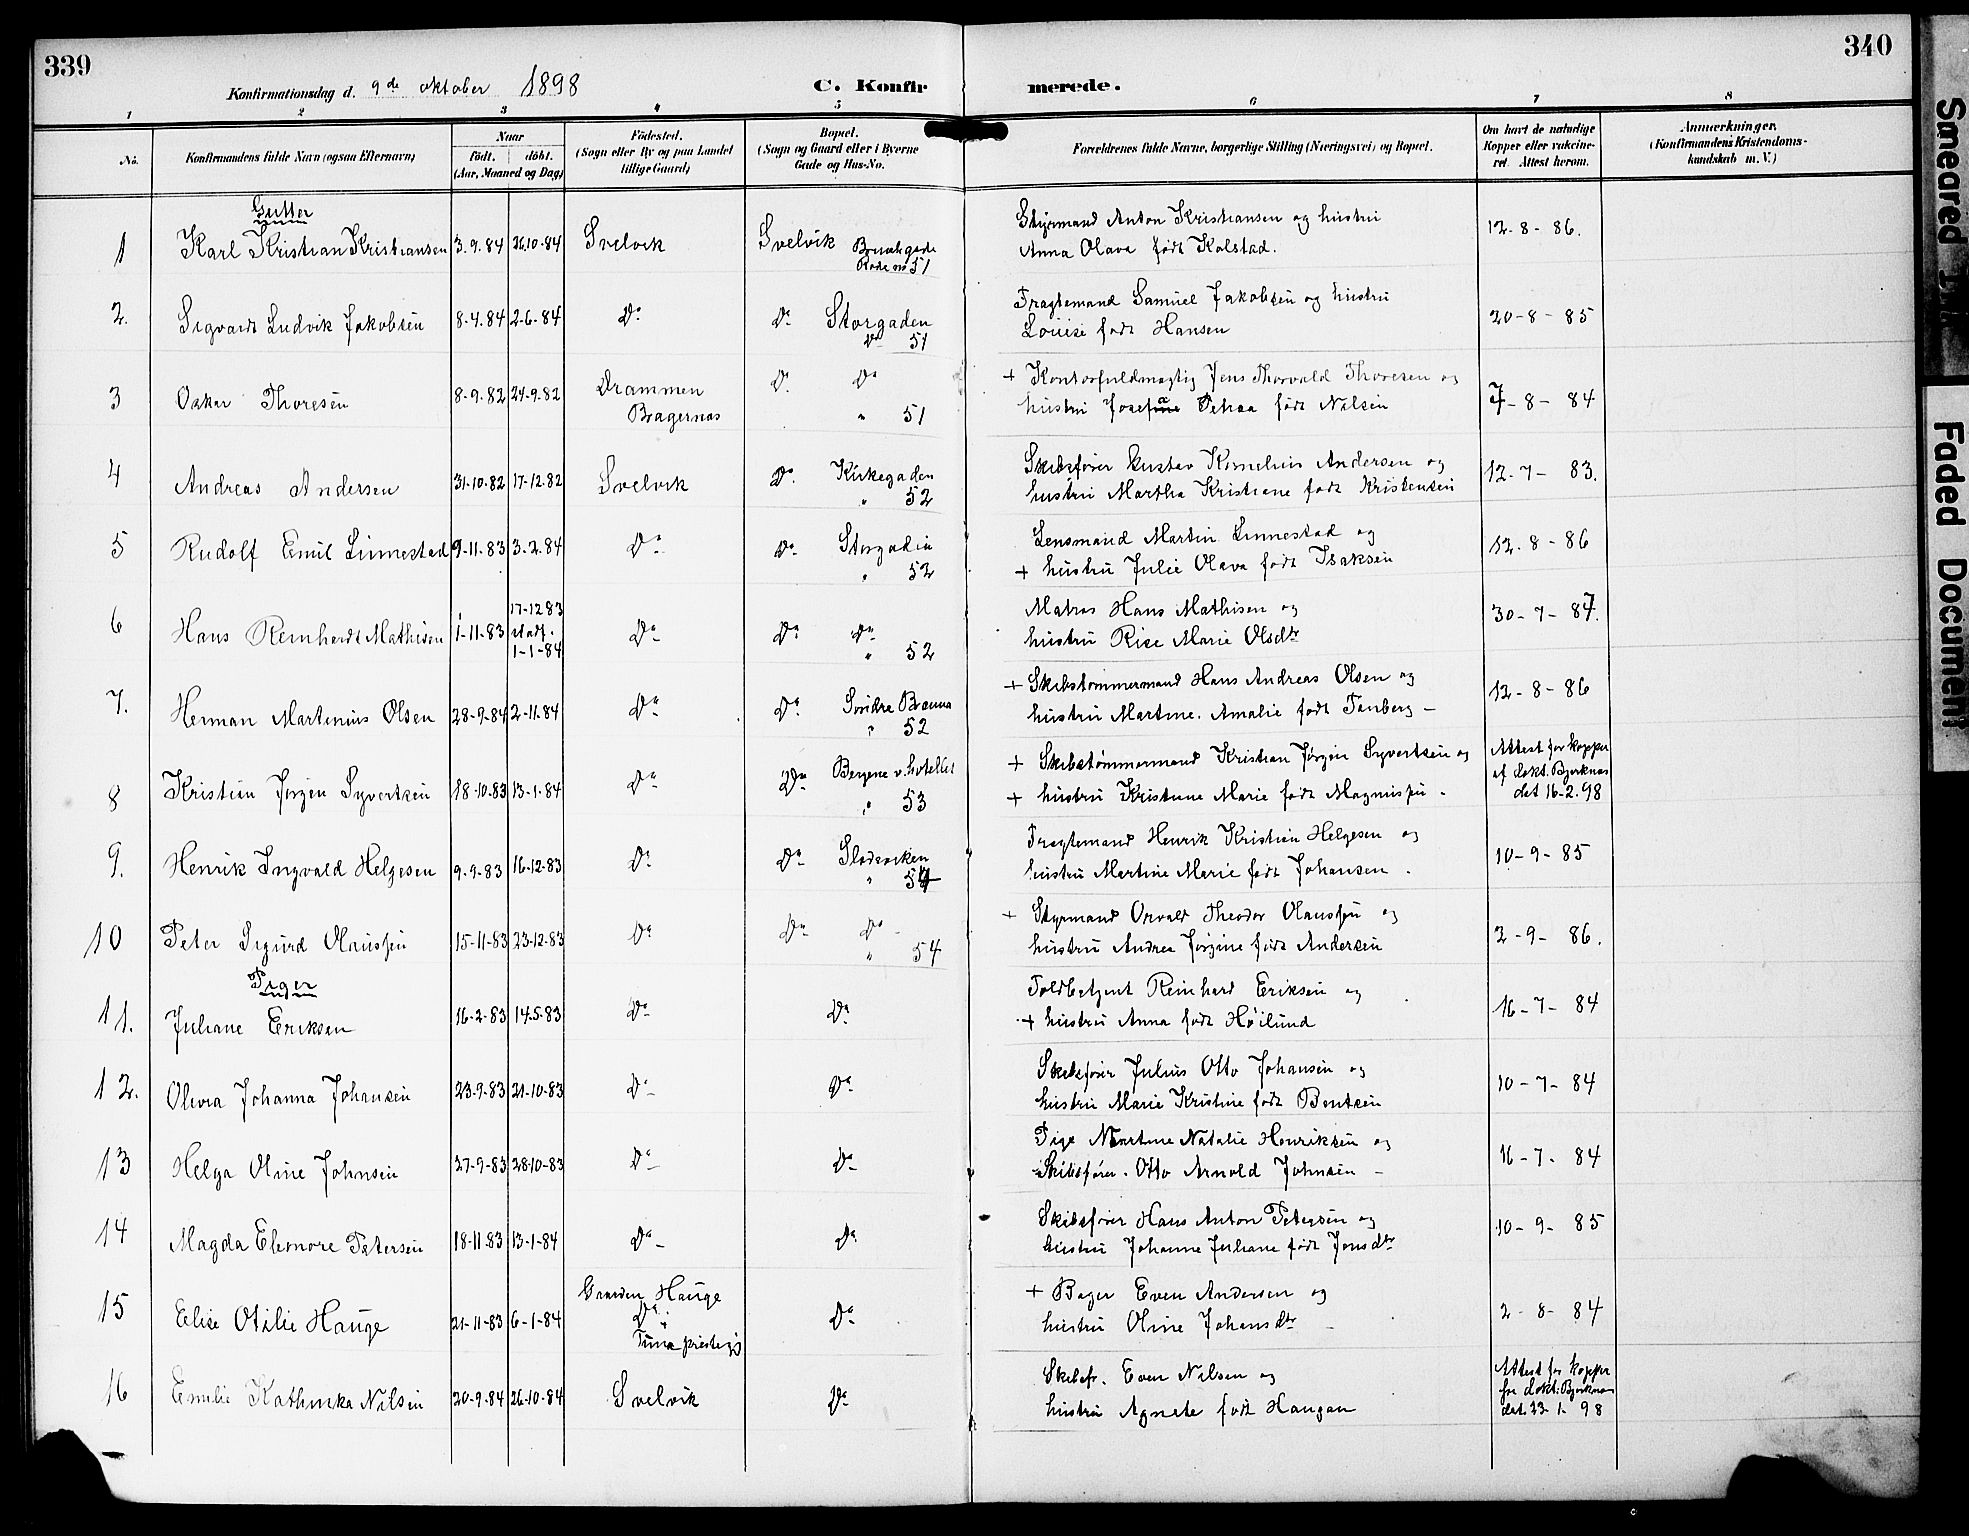 339
340
Konfirmationsdag d. 9de oktober 1898
C. Konfir
merede.
1 2 3 4 5 6 7 8
No.
Konfirmandens fulde Navn (ogsaa Efternavn)
Naar
födt. döbt.
(Aar, Maaned og Dag)
Födested.
(Sogn eller By og paa Landet
tillige Gaard)
Bopæl.
(Sogn og Gaard eller i Byerne
Gade og Hus-No.
Forældrenes fulde Navne, borgerlige Stilling (Næringsvei) og Bopæl.
Om havt de naturlige
Kopper eller vakcine-
ret. Attest herom.
Anmærkninger.
(Konfirmandens Kristendoms-
kundskab m. V.)
Gutter
1 Karl Kristian Kristiansen 3.9.84 26.10.84 Svelvik Svelvik
Rode no 51
Styrmand Anton Kristiansen og hustru
Anna Olava født Kolstad.
12-8-86.
2. Sigvardt Ludvik Jakobsen 8-4.84 2-6.84 Do Do Storgaden
Do 51
Fragtemand Samuel Jakobsen og hustru
Louise født Hansen
20-8-85
3 Oskar Thoresen 8-9.82 24-9.82 Drammen
Bragernæs
Do Do
" 51
+ Kontorfuldmægtig Jens Thorvald Thoresen og
hustru Josefine Petraa født Nilsen
7-8-84
4 Andreas Andersen 31-10.82 17-12.82 Svelvik Do Kirkegaden
" 52
Skibsfører Gustav Kornelius Andersen og
hustru Martha Kristiane født Kristensen
12-7-83.
5 Rudolf Emil Linnestad 9-11.83 3-2.84 Do Do Storgaden
" 52
Lensmand Martin Linnestad og
+ hustru Julie Olava født Isaksen
12.8-86
6 Hans Reinhardt Mathisen 1-11-83 17-1283
stadf.
1-1-84
Do Do Do
" 52
Matros Hans Mathisen og
hustru Rise Marie Olsdtr
30-7-87.
7. Herman Martinius Olsen 28-9.84 2-11.84 Do Do Søndre Brenna
" 52
+ Skibstømmermand Hans Andreas Olsen og
hustru Martine Amalie født Tanberg –
12-8-86
8 Kristian Jørgen Syvertsen 18-10.83 13-1.84 Do Do Bergene v. hotellet
" 53
+ Skibstømmermand Kristian Jørgen Syvertsen og
+ hustru Kristine Marie født Magnussen -
Attest for kopper
af dokt. Bjerknæs
det 16-2.98
9. Henrik Ingvald Helgesen 9-9.83 16-12.83 Do Do
" 54
Fragtemand Henrik Kristian Helgesen og
hustru Martine Marie født Johansen.
10-9-85
10 Peter Sigurd Olaussen 15-11-83 23-12.83 Do Do Do
" 54
+ Styrmand Osvald Theodor Olaussen og
hustru Andrea Jørgine født Andersen
2-9-86.
Piger
11. Juliane Eriksen 16-2.83 14.5.83 Do Do
Toldbetjent Reinhard Eriksen og
+ hustru Anna født Høilund
16-7-84
12. Olivia Johanna Johansen 23.9.83 21-10.83 Do Do
Skibsfører Julius Otto Johansen og
hustru Marie Kristine født Bentsen
10-7-84
13 Helga Oline Johnsen 27-9-83 28.10-83 Do Do
Pige Martine Natalie Henriksen og
Skibsfører. Otto Arnold Johnsen –
16-7.84
14 Magda Elenore Petersen 18-11.83 13-1-84 Do Do
Skibsfører Hans Anton Petersen og
hustru Johanne Juliane født Jonsdtr
10-9-85
15 Elise Otilie Hauge 21-11-83 6-1-84 Gaarden Hauge
Do i
Tune præstegj
Do
+ Bager Even Andersen og
hustru Oline Johansdtr –
2-8-84
16 Emilie Kathinka Nilsen 20-9.84 26-10.84 Svelvik Do
Skibsfr. Even Nilsen og
hustru Agnete født Haugan
Attest for kopper
fra dokt. Bjerknæs
det. 23-1-98
Smeared
Faded Document